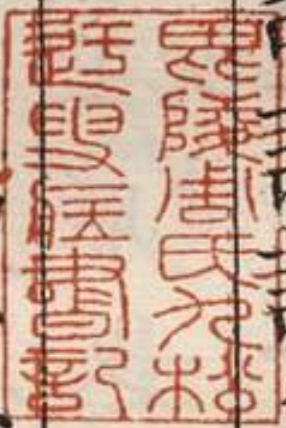 毘陵周氏九松
迂叟藏書記